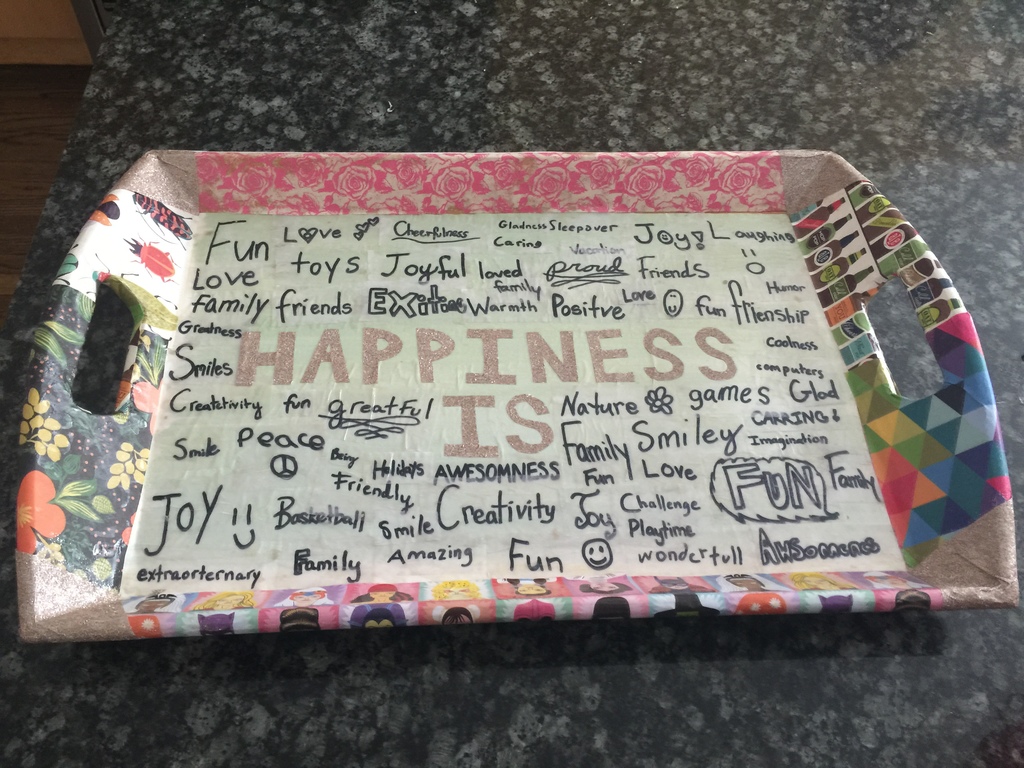 Fun Love Cheerfulness Gladness Sleepover Joy! Laughing
Caring Vacation
Love toys Joyful loved proud Friends
family Humor
family friends Exited Warmth Positve Love fun friienship
Greatness Coolness
Smiles HAPPINESS computers
Createtivity fun greatful IS Nature games Glad
CARRING &
Smile Peace Being Family Smiley Imagination
Holidays AWESOMNESS Fun Love FUN Family
Friendly
JOY Basketball Smile Creativity Joy Challenge
Playtime
extraorternary Family Amazing Fun wonderfull Awsomness